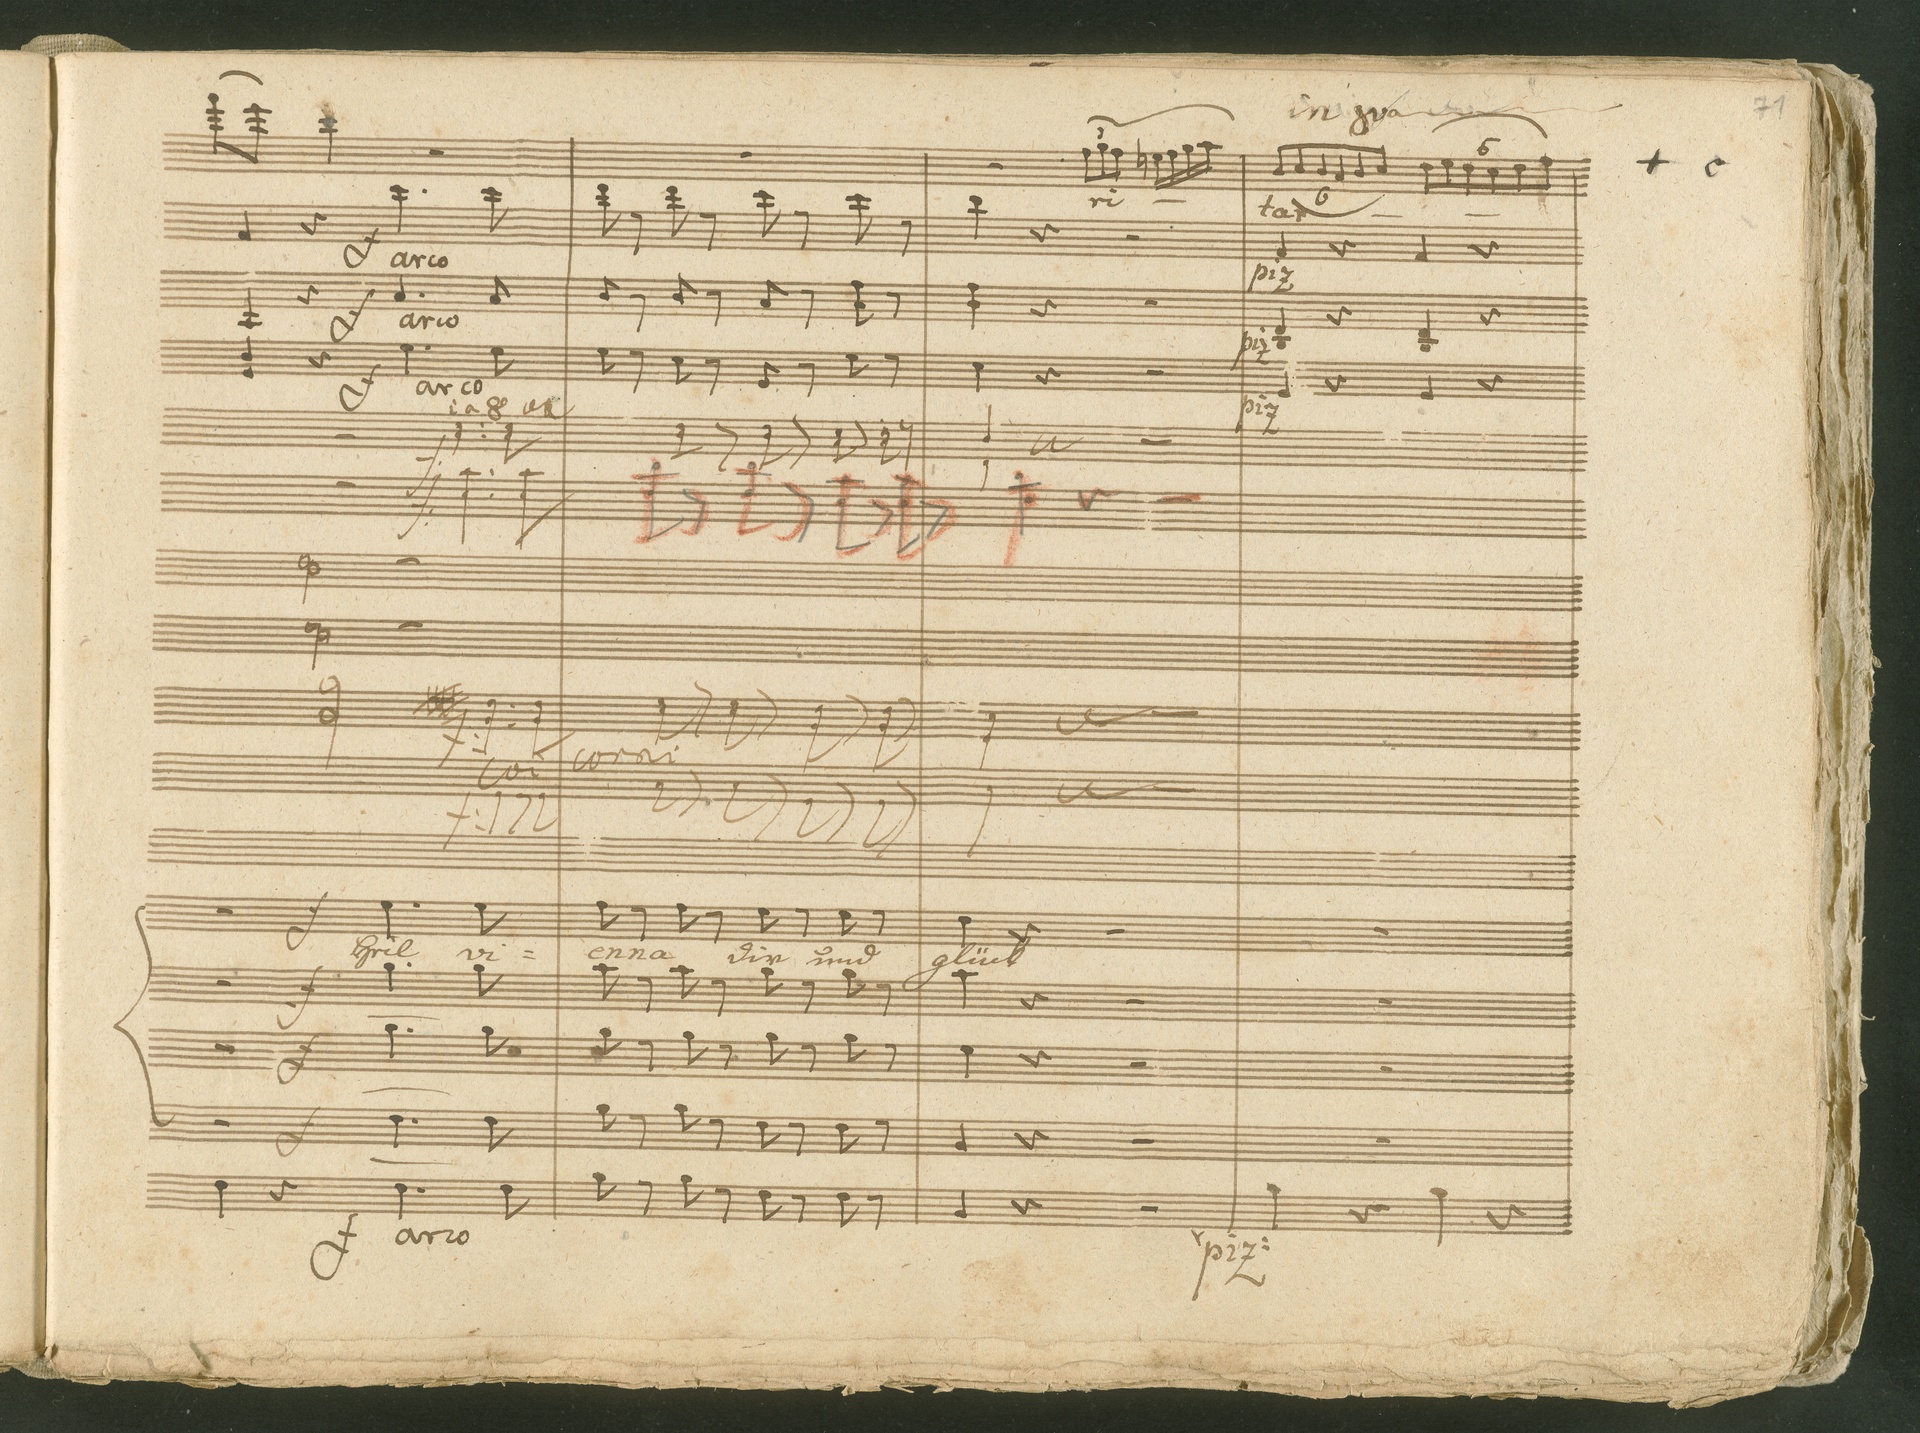 in 8va
71
+ c
3
6
ri — tar — —
6
f arco
piz
f arco
piz
f arco
piz
in 8va
f:
f:
f:
coi corni
f:
f
Heil vi = enna dir und glück
f
f
f
f arco
piz: